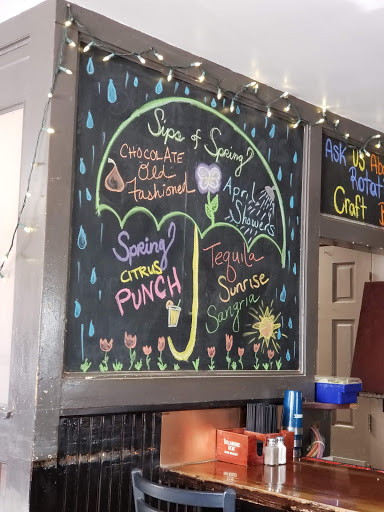 Sips of Spring!
CHOCOLATE
Old
Fashioned
April
Showers
Spring
CITRUS
PUNCH
Tequila
Sunrise
Sangria
Ask US Abo
Rotat
Craft B